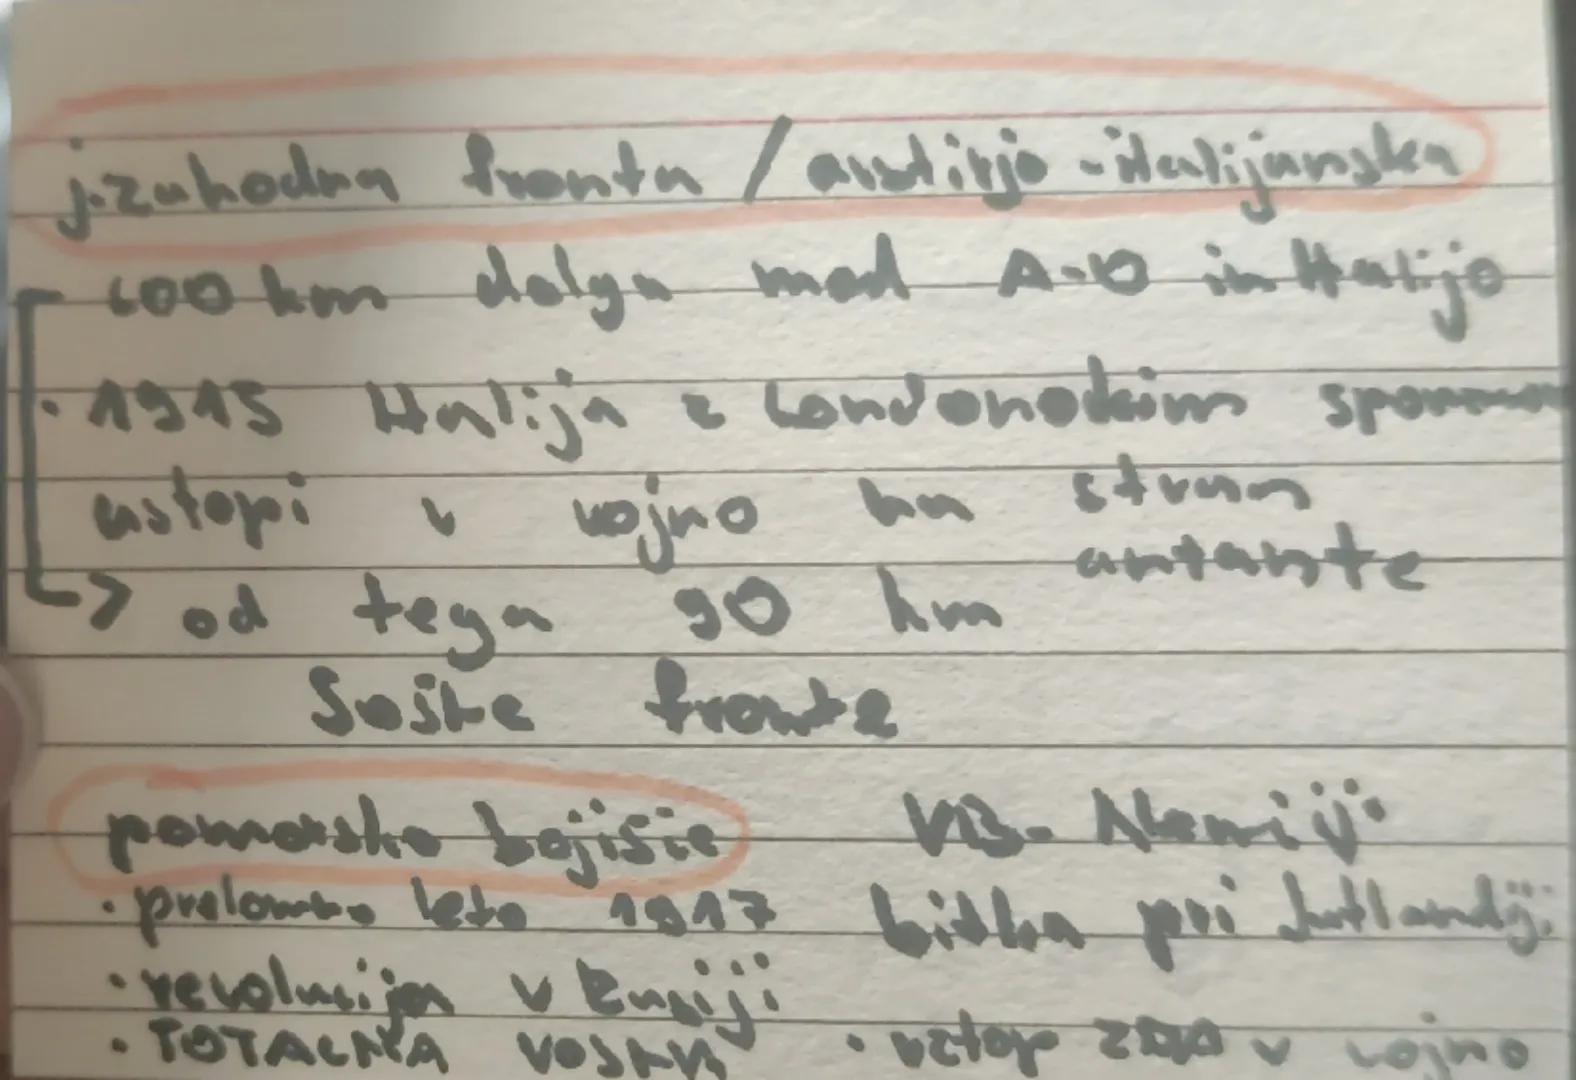 j.zahodna fronta / avstirjo-italijanska
600 km dolga med A-O in Italijo
• 1915 Italija z Londonskim sporazmom
ustopi v vojno na stran
antante
→ od tega 90 km
Soške fronte
pomorsko bojišče VB - Nemčiji
• prelomno leto 1917 bitka pri Jutlandiji
• revolucija v Rusiji
• TOTALNA VOJNA • vstop ZDA v vojno